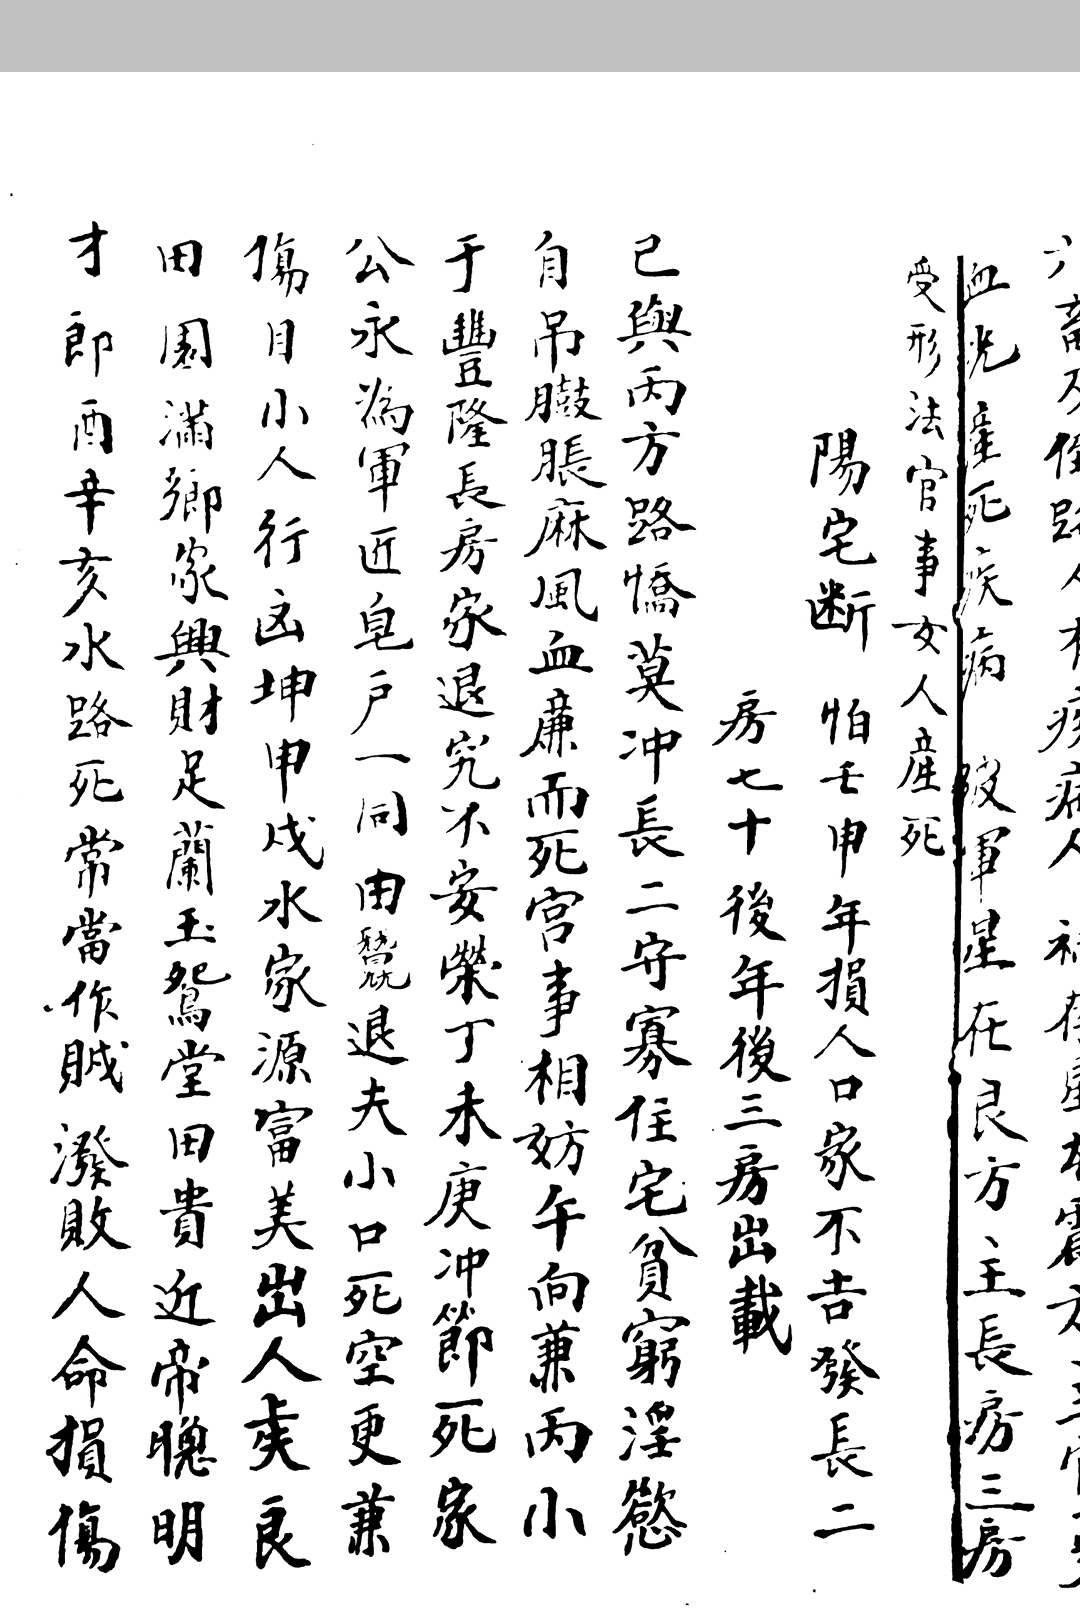 六畜及傷路人有疾病人 禄存星在震方主官
血光產死疾病 破軍星在艮方主長房三房
受形法官事女人產死
陽宅断 怕壬申年損人口家不吉發長二
房七十後年後三房出載
己與丙方路憍莫冲長二守寡住宅貧窮淫慾
自吊臌脹麻風血𢊍而死宫事相妨午向兼丙小
于豐隆長房家退究不安榮丁未庚冲節死家
公永為軍匠皂户一同由退夫小口死空更兼
傷目小人行凶坤申戌水家源富美出人良
田園滿鄉家興財足蘭玉鴛堂田貴近帝聰明
才郎酉辛亥水路死常當作賊潑敗人命損傷